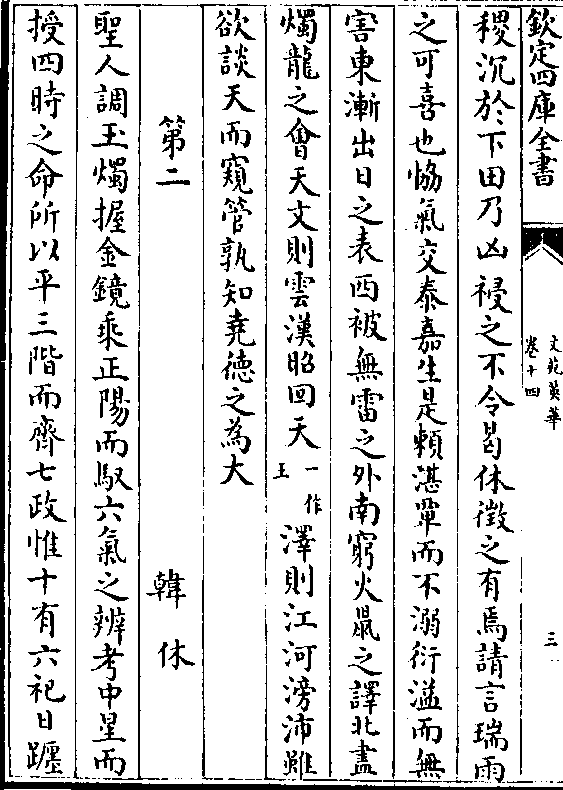 欽定四庫全書
文苑英華
卷十四
三
稷沉於下田乃凶祲之不令曷休徴之有焉請言瑞雨
之可喜也恊氣交泰嘉生是頼湛覃而不溺衍溢而無
害東漸出日之表西被無雷之外南窮火鼠之譯北盡
燭龍之會天文則雲漢昭回天一作王澤則江河滂沛雖
欲談天而窺管孰知堯德之為大
第二 韓休
聖人調玉燭握金鏡乘正陽而馭六氣之辨考中星而
授四時之命所以平三階而齊七政惟十有六祀日躔